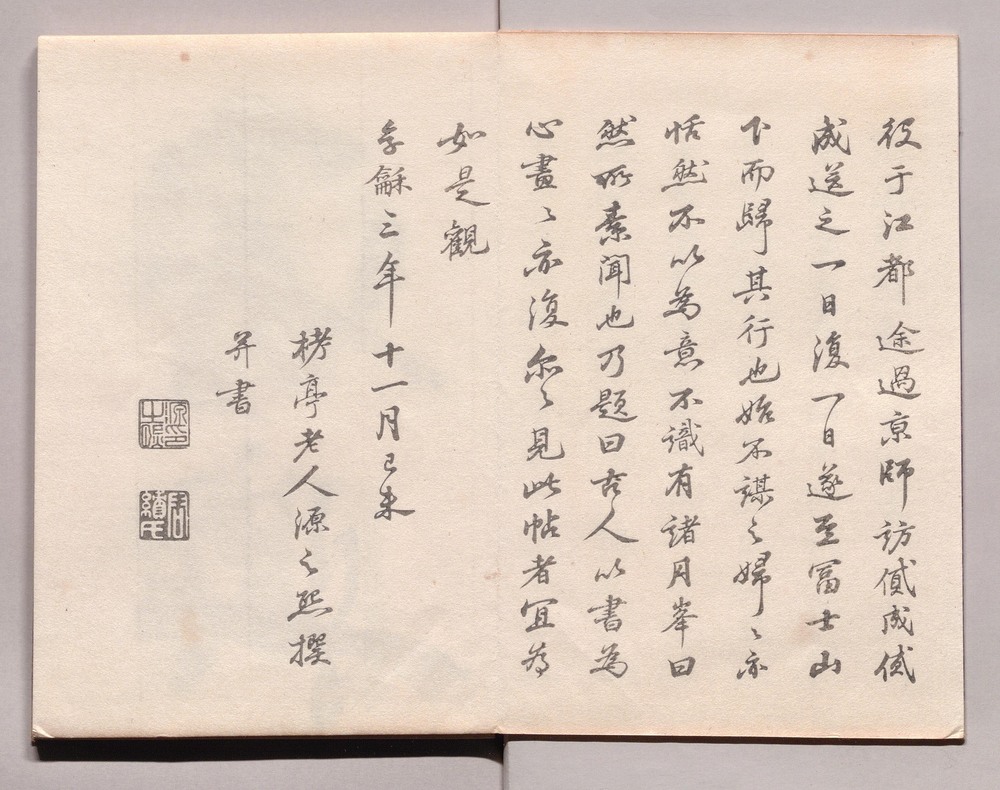 役于江都途過京師訪貸成貸
成送之一日復一日遂至冨士山
下而歸其行也始不謀之婦〻亦
恬然不以為意不識有諸月峯曰
然所素聞也乃題曰古人以書為
心畫〻亦復尔〻見此帖者宜為
如是觀
享龢三年十一月己未
栲亭老人源之熙撰
并書
源印之熙
君績氏